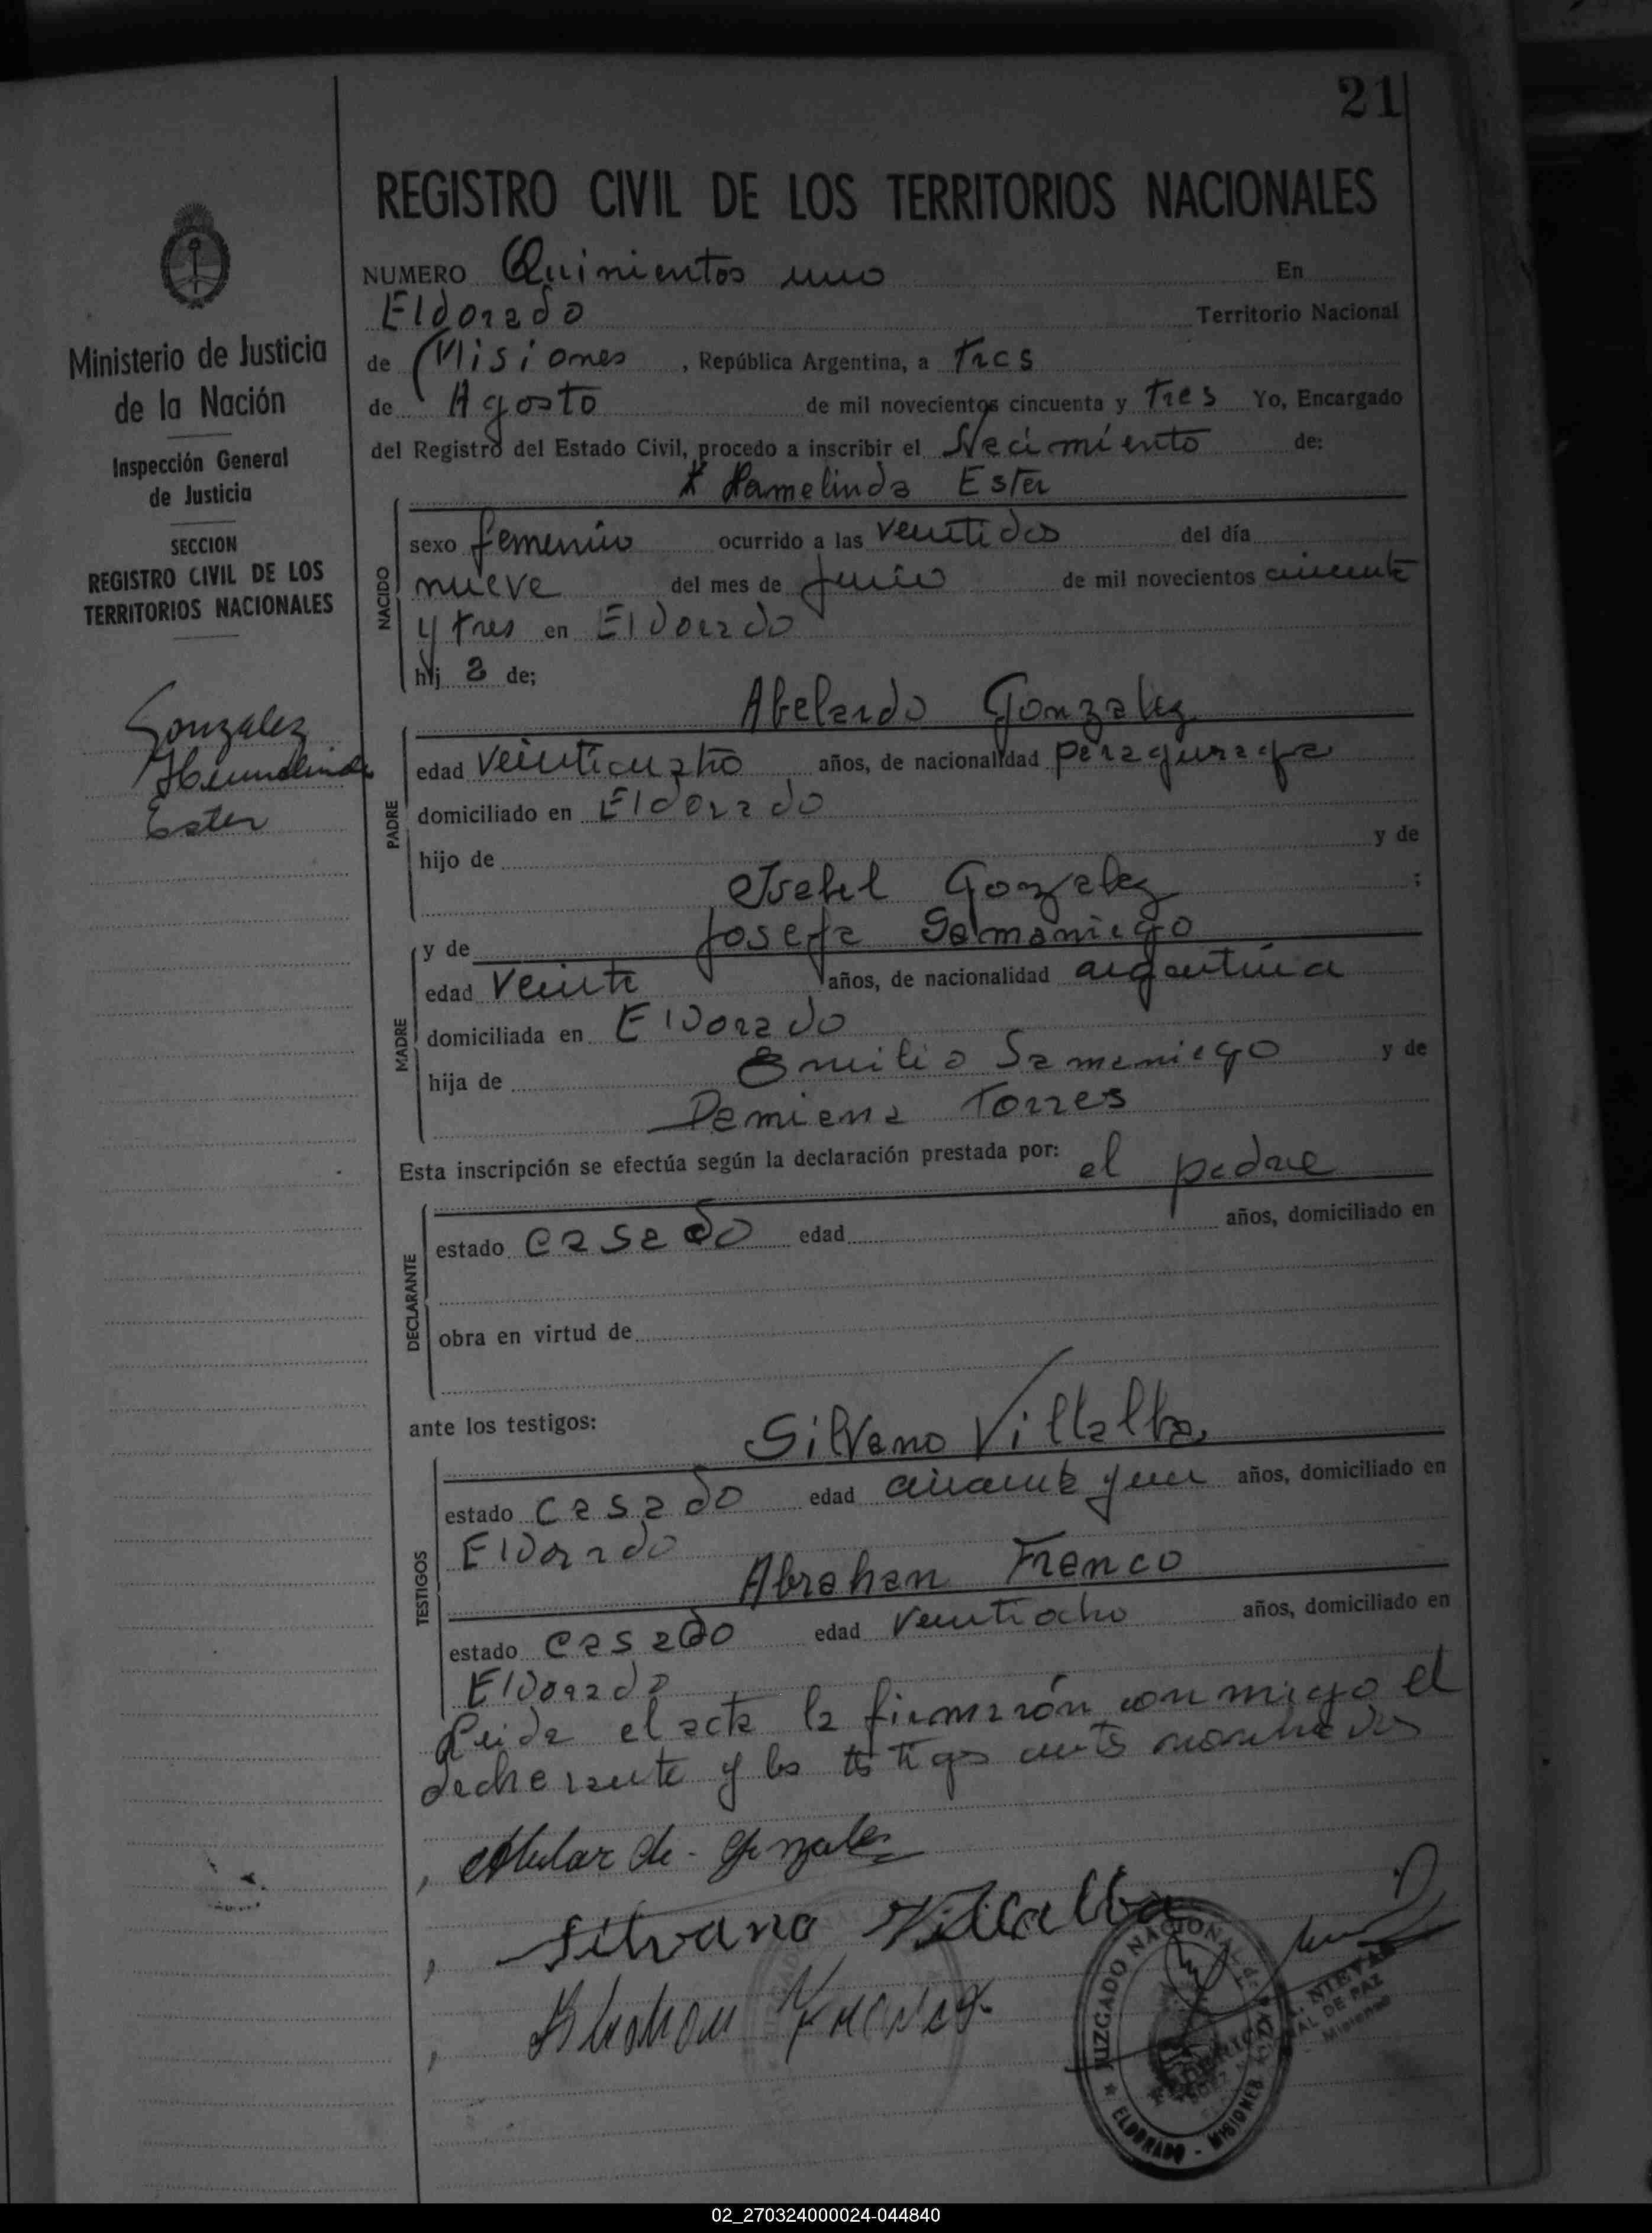 21
REGISTRO CIVIL DE LOS TERRITORIOS NACIONALES
NUMERO Quinientos uno En
Eldorado Territorio Nacional
de Misiones, República Argentina, a tres
de Agosto de mil novecientos cincuenta y tres Yo, Encargado
del Registro del Estado Civil, procedo a inscribir el Nacimiento de:
Ester
NACIDO
sexo femenino ocurrido a las veintidos del día
nueve del mes de Junio de mil novecientos cincuenta
y tres en Eldorado
hij a de;
PADRE
Abelardo Gonzalez
edad veinticuatro años, de nacionalidad paraguaya
domiciliado en Eldorado
hijo de y de
Isabel Gonzalez ;
MADRE
y de Josefa Samaniego
edad veinte años, de nacionalidad argentina
domiciliada en Eldorado
hija de Emilio Samaniego y de
Damiana Torres
Esta inscripción se efectúa según la declaración prestada por: el padre
DECLARANTE
estado casado edad años, domiciliado en
obra en virtud de
ante los testigos:
TESTIGOS
Silvano Villalba
estado casado edad cincuenta y un años, domiciliado en
Eldorado
Abrahan Franco
estado casado edad veintiocho años, domiciliado en
Eldorado
Leida el acta la firmarón conmigo el
declarante y los testigos antes nombrados
Silvano Villalba
Abrahan Franco
JUZGADO NACIONAL DE PAZ
ELDORADO - MISIONES
NIEVAS
DE PAZ
Misiones
Ministerio de Justicia
de la Nación
Inspección General
de Justicia
SECCION
REGISTRO CIVIL DE LOS
TERRITORIOS NACIONALES
Gonzalez
Ester
02_270324000024-044840